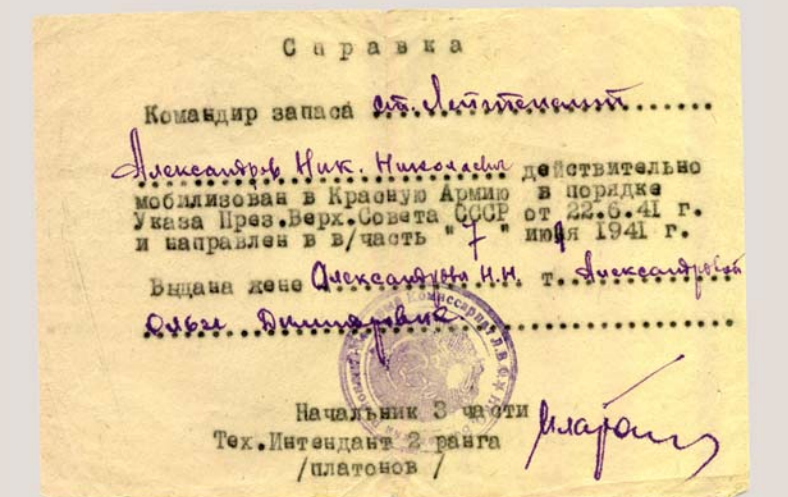 Справка
Командир запаса ст. Лейтенант
Александров Ник. Николаевич действительно
мобилизован в Красную Армию в порядке
Указа През.Верх.Совета СССР от 22.6.41 г.
и направлен в в/часть "7" июля 1941 г.
Выдана жене Александрова Н.Н. т. Александровой
Ольге
Начальник 3 части
Тех.Интендант 2 ранга
/платонов /